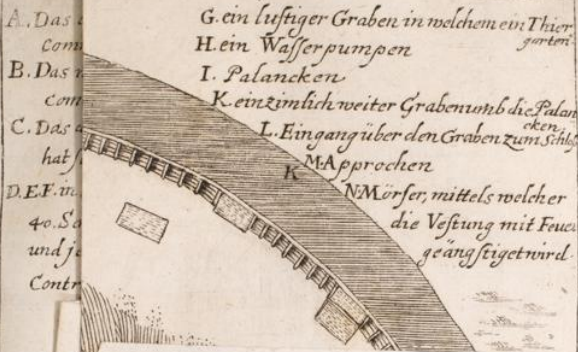 A. Das
com
B. Das
com
C. Das
hat
D.E.F. in
40. Sc
und je
Contr
G. ein lustiger Graben in welchem ein Thier
garten
H. ein Wasserpumpen
I. Palancken
K. ein zimlich weiter Graben umb die Palan
cken.
L. Eingang über den Graben zum Schlos
M. Approchen
K
N. Mörser, mittels welcher
die Vestung mit Feuer
geängstiget wird.